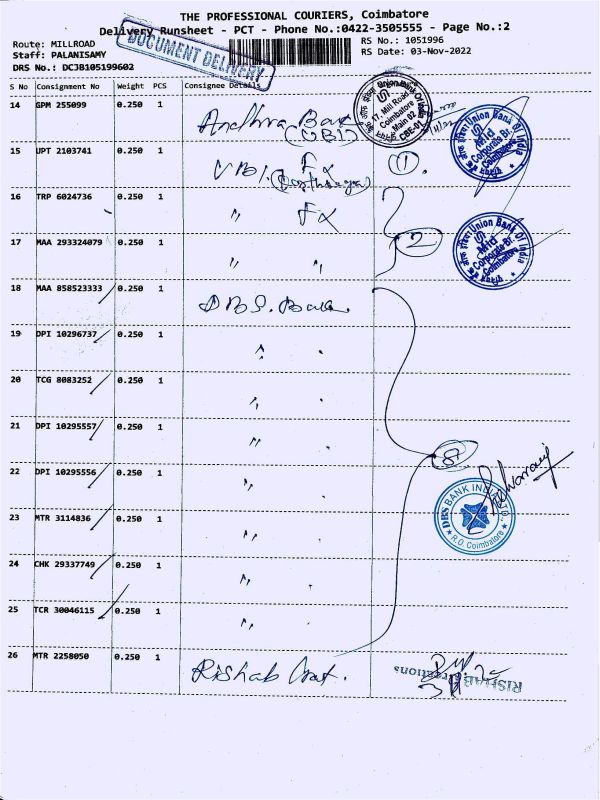 THE PROFESSIONAL COURIERS, Coimbatore
Delivery Runsheet - PCT - Phone No.:0422-3505555 - Page No.:2
Route: MILLROAD
RS No.: 1051996
Staff: PALANISAMY
RS Date: 03-Nov-2022
DRS No.: DCJB105199602
DOCUMENT DELIVERY
S No Consignment No Weight PCS Consignee Details
14 GPM 255099 0.250 1 Andhra Bank
(UBI)
17, Mill Road
Coimbatore
Main 02
CBE-01
Union Bank Of India
15 UPT 2103741 0.250 1 UBI. Fx
1.
Union Bank Of India
Mid
Corporate Br.
Coimbatore
16 TRP 6024736 0.250 1 " Fx
17 MAA 293324079 0.250 1 " "
2
Union Bank Of India
Mid
Corporate Br.
Coimbatore
18 MAA 858523333 0.250 1 DBS. Bank
19 DPI 10296737 0.250 1 " "
20 TCG 8083252 0.250 1 " "
21 DPI 10295557 0.250 1 " "
22 DPI 10295556 0.250 1 " "
8
23 MTR 3114836 0.250 1 " "
DBS BANK INDIA LTD.,
R.O. Coimbatore
24 CHK 29337749 0.250 1 " "
25 TCR 30046115 0.250 1 " "
26 MTR 2258050 0.250 1 Rishab
RISHAB Creations